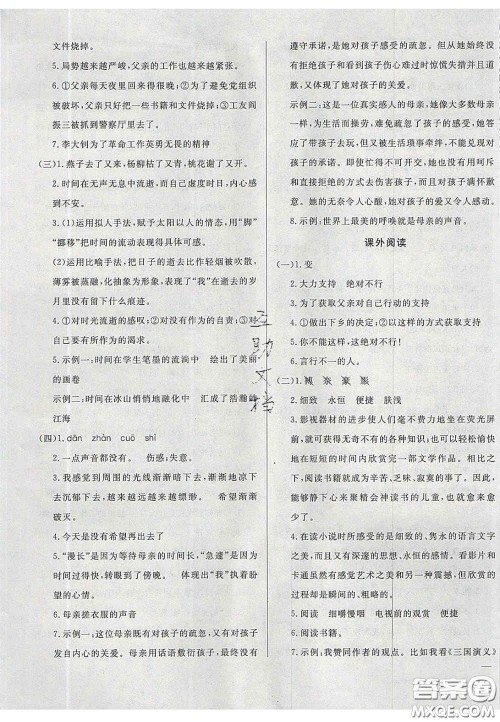 文件烧掉。
5. 局势越来越严峻，父亲的工作也越来越紧张。
6. ①父亲每天夜里回来得很晚；②为了避免党组织
被破坏，父亲只好把一些书籍和文件烧掉；③工友阎
振三被抓到警察厅里去了。
7. 李大钊为了革命工作英勇无畏的精神
(三)1. 燕子去了又来，杨柳枯了又青，桃花谢了又开。
2. 时间在无声无息中流逝，而自己虚度年华，内心感
到不安。
3. (1)运用拟人手法，赋予太阳以人的情态，用“脚”
“挪移”把时间的流动表现得具体可感。
(2)运用比喻手法，把自己比作轻烟被吹散，
薄雾被蒸融，化抽象为形象，表现了“我”在逝去的岁
月里没有留下什么痕迹。
4. ①对时光流逝的感慨；②对没有作为的自责；③要
有所作为的渴求。
5. 示例一：时间在学生笔墨的流淌中 绘出了美丽
的画卷
示例二：时间在冰山悄悄地融化中 汇成了浩瀚的
江海
(四)1. dān zhàn cuō shǐ
2. 一点声都没有。 伤感；失意。
3. 我感觉到周围的光线渐渐暗下去，渐渐地凉了
下去沉郁下去，越来越远越来越缥缈。 希望渐渐
破灭。
4. 今天是没有希望再出去了
5. “漫长”是因为等待母亲的时间长，“急遽”是因为时
间太快，转眼到了傍晚。 体现出“我”执着盼
望的心情。
6. 母亲搓衣服的声音
7. 示例一：这位母亲既有对孩子的疏忽，又有对孩子
发自内心的关爱。母亲用话语敷衍孩子，最后没有
遵守承诺，是她对孩子感受的疏忽。但当她发现没
有拒绝孩子和孩子伤心难过时惊慌失措并真诚道
歉，又体现了她对孩子的关爱。
示例二：这是一位真实感人的母亲，她像大多数母亲
一样，为生活而操劳，难免忽略了孩子的感受，她答
应了带孩子去玩，但是被生活琐事牵绊，不能兑现对
孩子的承诺，所以她忙得不可开交。但她又没有用
直接拒绝的方式去伤害孩子，而是尽量以委婉的方
式安慰孩子，并因为没有满足孩子的愿望而感到内
疚。她的无奈令人心酸，她对孩子的关爱又让人感动。
8. 示例：世界上最美的呼唤就是母亲的声音。
课外阅读
(一)1. 变
2. 大力支持 绝对不行
3. 为了获取父亲对自己行动的支持
4. ①做出下乡的决定；②以这样的方式获取支持
5. 你不能这样，这绝对不行！
6. 言行不一的人。
2. 细致 永恒 便捷 肤浅
3. 影视器材的进步使人们毫不费力地坐在荧光屏
前，就可以获得如临其境的感受，可以轻松愉快
在短短的时间内欣赏完一部文学作品。
4. 阅读书籍就成了非常辛苦、乏味、寂寞的事了。因此，
能够静下心来聚精会神读书的儿童，也就更少
了。
5. 在读小说时所感受的是细致的、隽永的语言文字之
美，而又有深邃的思想、永恒的情感。而看影片和
卡通虽然有感觉艺术之美和另一种震撼，但欣赏的
时间是瞬间的、粗略的。
5. 阅读 细嚼慢咽 电视前的观赏 便捷
6. 阅读书籍。
7. 示例：我赞同作者的观点。比如我看《三国演义》
答案圈
MXQE.COM